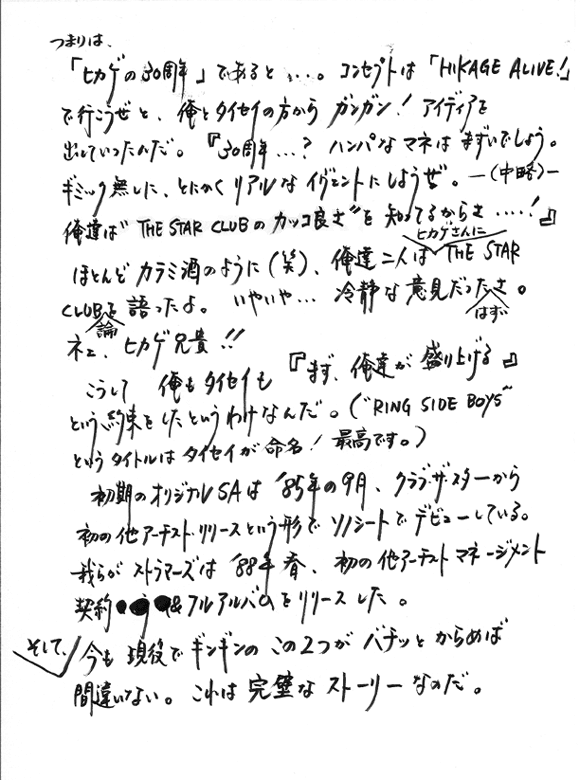 つまりは、
「ヒカゲの30周年」であると…。コンセプトは「HIKAGE ALIVE!」
で行こうぜと、俺とタイセイの方から ガンガン！アイディアを
出していったんだ。『30周年…？ハンパなマネはまずいでしょう。
ギミック無しに、とにかくリアルなイヴェントにしようぜ。―(中略)―
俺達は〝THE STAR CLUBのカッコ良さ〟を知ってるからさ……！』
ほとんどカラミ酒のように(笑)、俺達二人はヒカゲさんに THE STAR
CLUB論を語ったよ。いやいや…冷静な意見だったはずさ。
ネェ、ヒカゲ兄貴!!
こうして 俺もタイセイも『まず、俺達が盛り上げる』
という約束をしたというわけなんだ。(〝RING SIDE BOYS〟
というタイトルはタイセイが命名！最高です。)
初期のオリジナルSAは '85年の9月、クラブ・ザ・スターから
初の他アーチストリリースという形でソノシートでデビューしている。
我らがストラマーズは '88年春、初の他アーチストマネージメント
契約&フルアルバムをリリースした。
そして、今も現役でギンギンのこの2つがバチッとからめば
間違いない。これは完璧なストーリーなのだ。